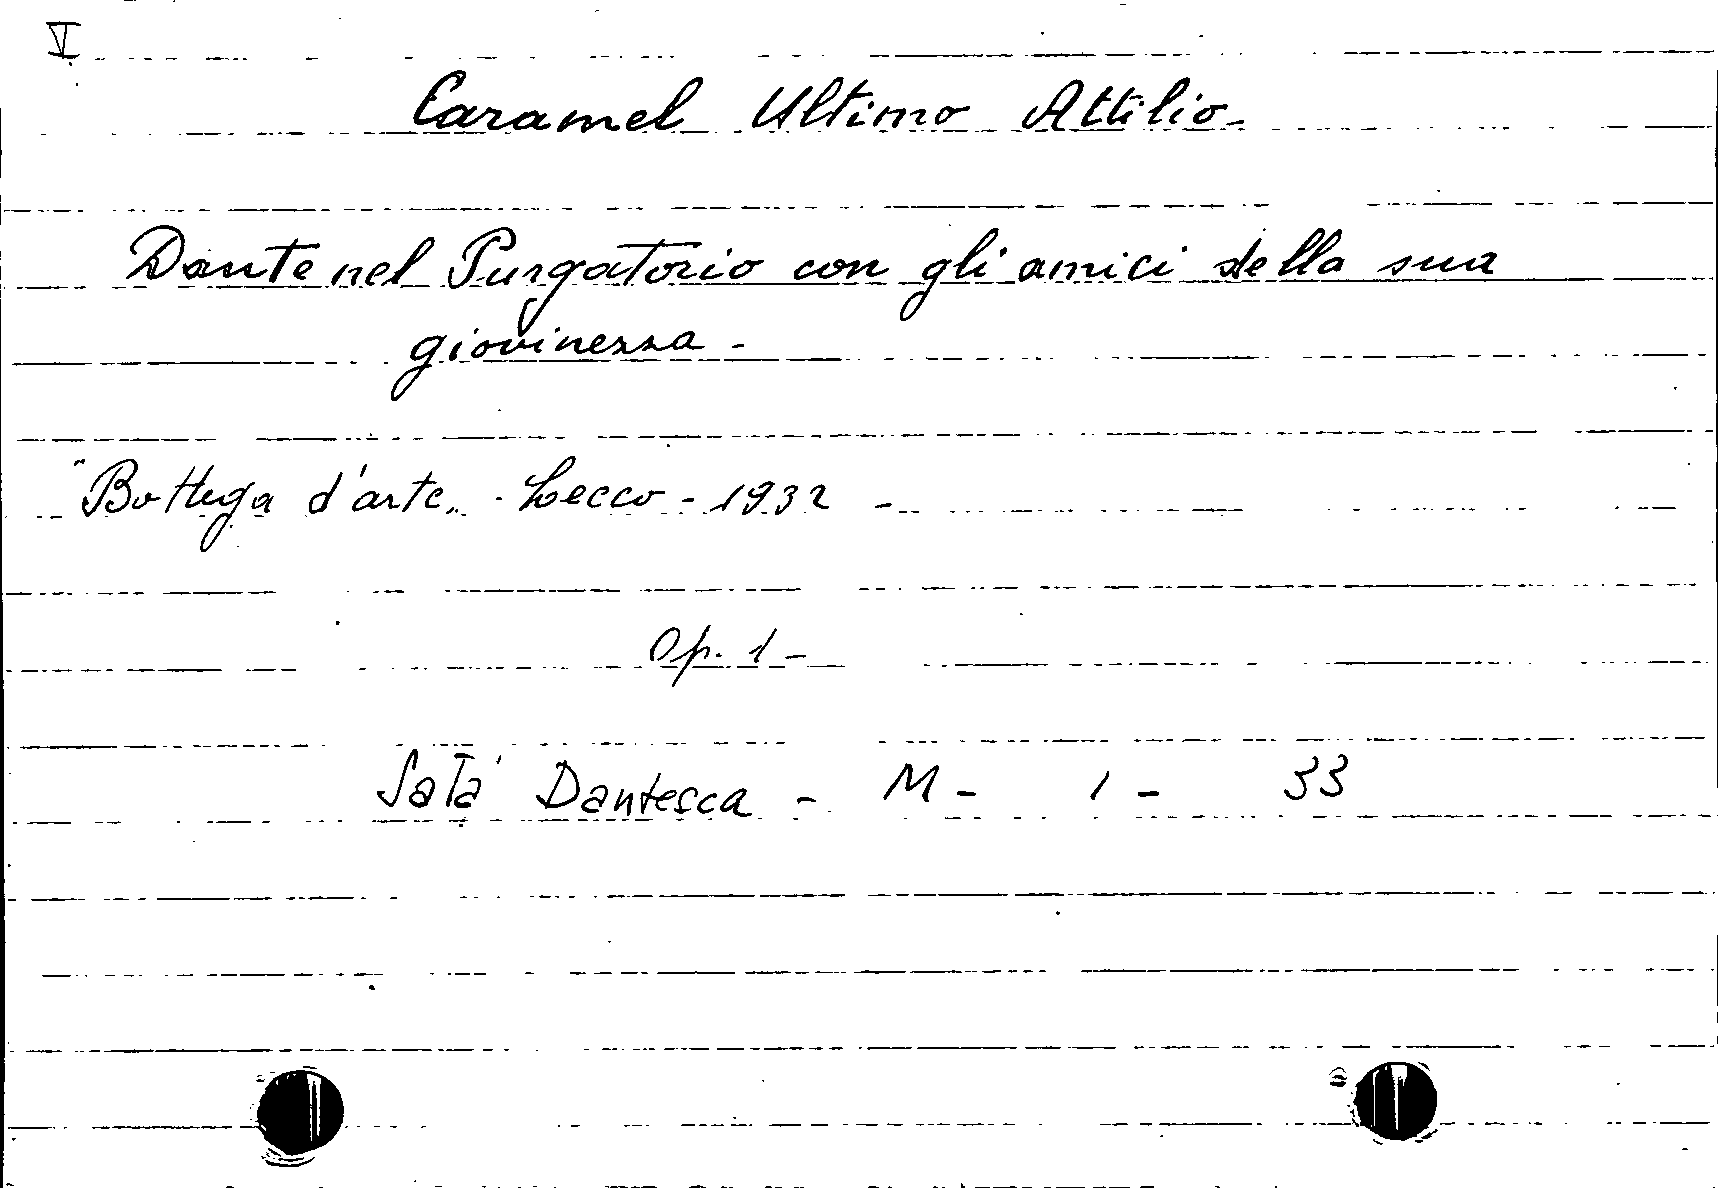 V
Caramel Ultimo Attilio-
Dante nel Purgatorio con gli amici della sua
giovinezza -
"Bottega d'arte„ - Lecco - 1932 -
Op. 1 -
Sala Dantesca - M - 1 - 33